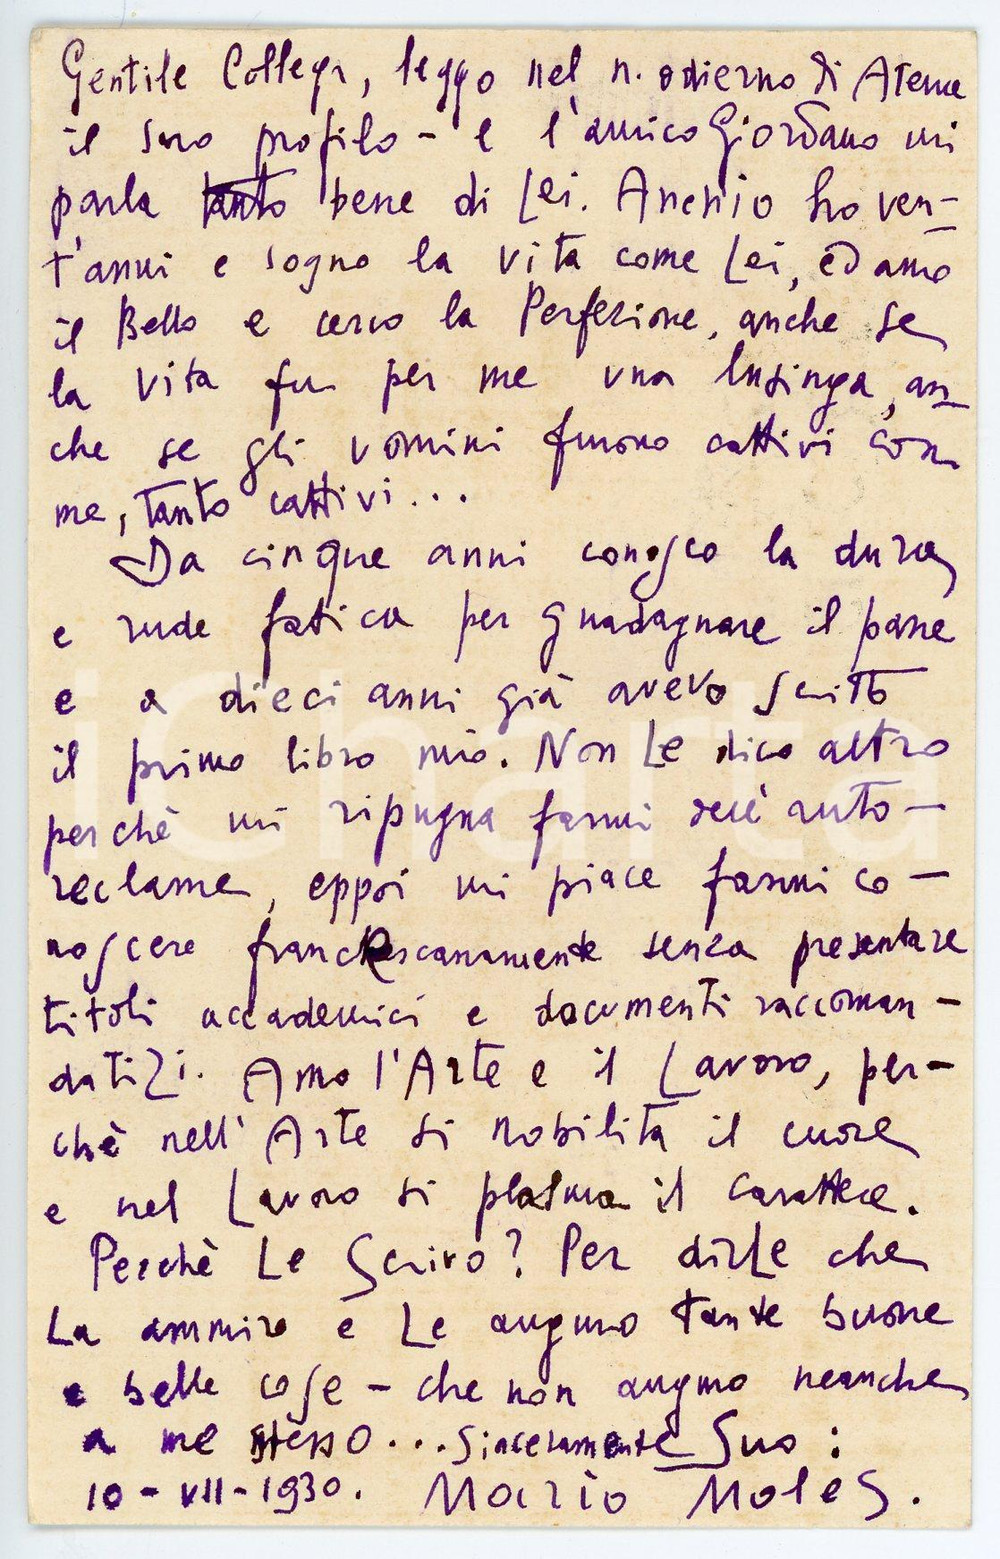 Gentile Collega, leggo nel n. odierno di Atene
il suo profilo - e l'amico Giordano mi
parla tanto bene di Lei. Anch'io ho ven-
t'anni e sogno la vita come Lei, ed amo
il Bello e cerco la Perfezione, anche se
la vita fu per me una lusinga, an-
che se gli uomini furono cattivi con
me, tanto cattivi...
Da cinque anni conosco la dura
e rude fatica per guadagnare il pane
e a dieci anni già avevo scritto
il primo libro mio. Non Le dico altro
perchè mi ripugna farmi dell'auto-
reclame, eppoi mi piace farmi co-
noscere francescanamente senza presentare
titoli accademici e documenti raccoman-
datizi. Amo l'Arte e il Lavoro, per-
chè nell'Arte si nobilita il cuore
e nel Lavoro si plasma il carattere.
Perchè Le Scrivo? Per dirLe che
La ammiro e Le auguro tante buone
e belle cose - che non auguro neanche
a me stesso... Sinceramente Suo:
10-VII-1930. Mario Moles.
iCharta